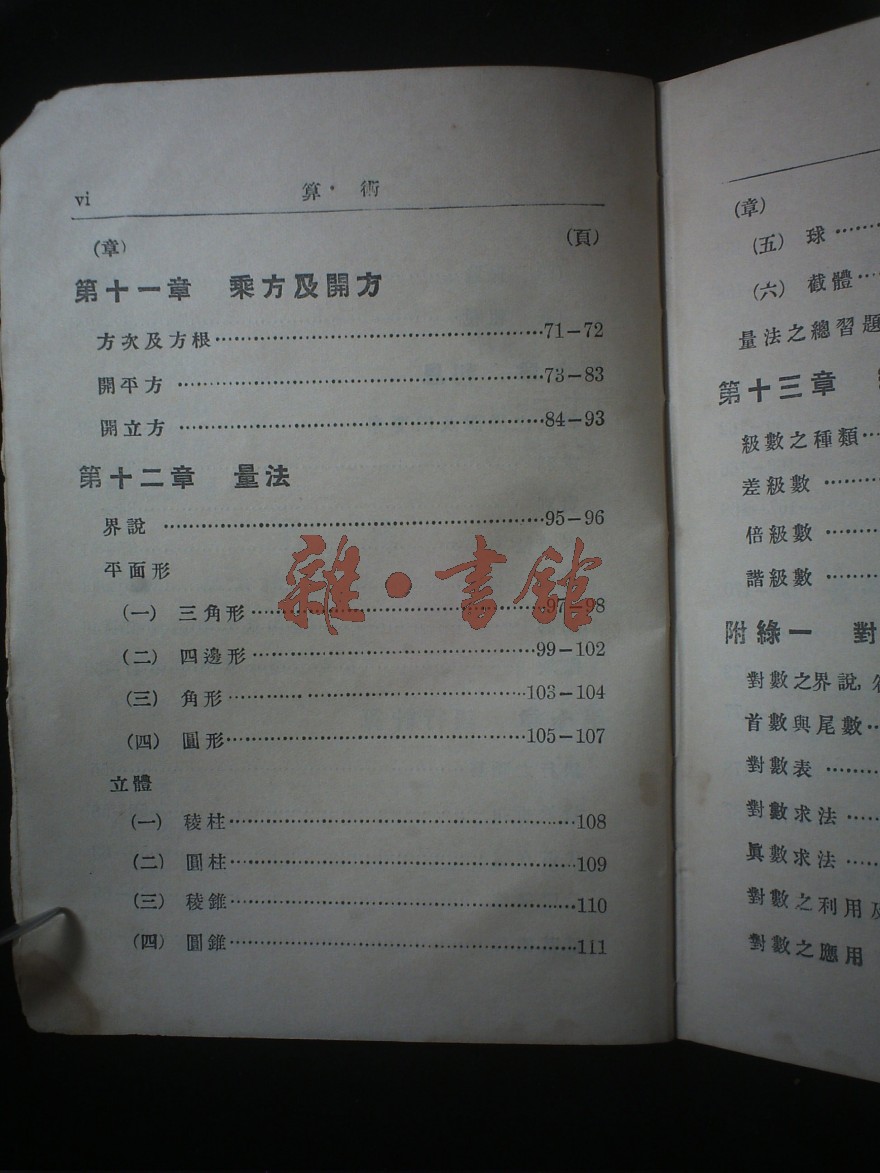 vi 算術
(章) (頁)
第十一章 乘方及開方
方次及方根……71–72
開平方……73–83
開立方……84–93
第十二章 量法
界說……95–96
平面形
(一) 三角形……97–98
(二) 四邊形……99–102
(三) 角形……103–104
(四) 圓形……105–107
立體
(一) 稜柱……108
(二) 圓柱……109
(三) 稜錐……110
(四) 圓錐……111
雜·書館
(章)
(五) 球……
(六) 截體……
量法之總習題
第十三章
級數之種類…
差級數……
倍級數……
諧級數……
附錄一 對
對數之界說,
首數與尾數…
對數表……
對數求法……
眞數求法……
對數之利用及
對數之應用